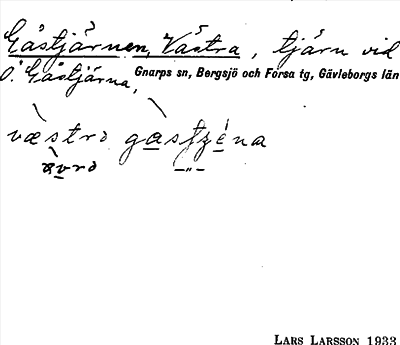 Gåstjärnen, Västra, tjärn vid
Ö. Gåstjärna, Gnarps sn, Bergsjö och Forsa tg, Gävleborgs län
væstrə gastʒéna
øvrə –„–
LARS LARSSON 1933